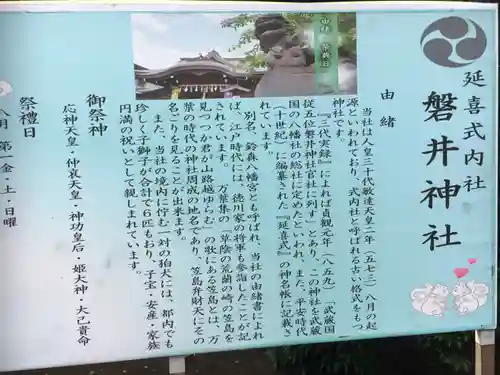 延喜式内社
磐井神社
由緒
当社は人皇三十代敏達天皇二年（五七三）八月の起
源といわれており、式内社と呼ばれる古い格式をもつ
神社です。
『三代実録』によれば貞観元年（八五九）「武蔵国
従五位磐井神社官社に列す」とあり、この神社を武蔵
国の八幡社の総社に定めたといわれ、また、平安時代
（十世紀）に編纂された『延喜式』の神名帳に記載さ
れています。
別名、鈴森八幡宮とも呼ばれ、当社の由緒書によれ
ば、江戸時代には、徳川家の将軍も参詣したことが記
されています。万葉集の、草陰の荒藺の崎の笠島を
見つつか君が山路越ゆらむ の歌にある笠島とは、万
葉の時代の神社周域の地名であり、笠島弁財天にその
名ごりを見ることが出来ます。
また、当社の境内に佇む一対の狛犬には、都内でも
珍しく子獅子が合計で6匹もおり、子宝・安産・家族
円満の祝いとして親しまれています。
御祭神
応神天皇・仲哀天皇・神功皇后・姫大神・大己貴命
祭禮日
八月 第一金・土・日曜